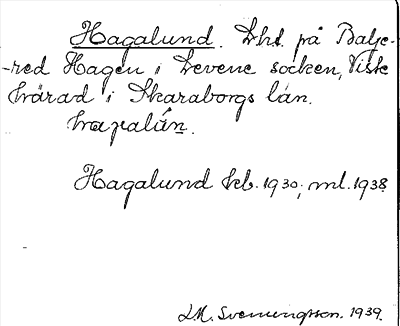 Hagalund. Lht. på Balje-
-red Hagen i Levene socken, Viste
härad i Skaraborgs län.
hagalún.
Hagalund kb. 1930; ml. 1938
L.M. Svenungsson. 1939.